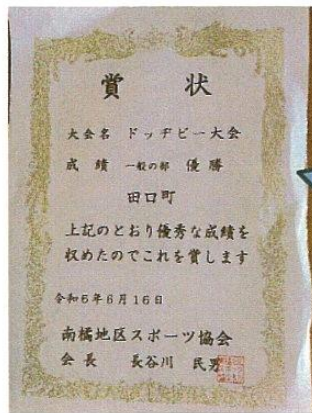 賞 状
大会名 ドッヂビー大会
成 績 一般の部 優 勝
田口町
上記のとおり優秀な成績を
収めたのでこれを賞します
令和6年6月16日
南橘地区スポーツ協会
会 長 長谷川 民男